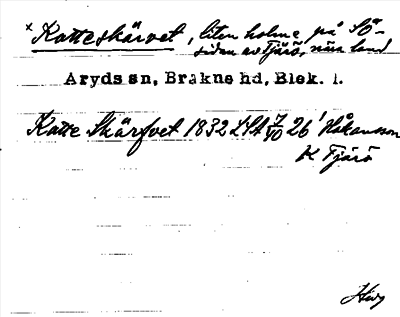 x Katteskärvet, liten holme på SÖ-
sidan av Tjärö, nära land
Aryds sn, Bräkne hd, Blek. l.
Katte Skärfvet 1832 LSt 7/10 26 Håkansson
K Tjärö